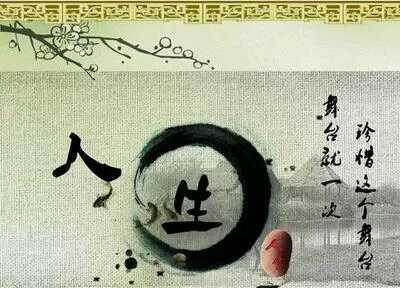 人生
珍惜这个舞台
舞台就一次